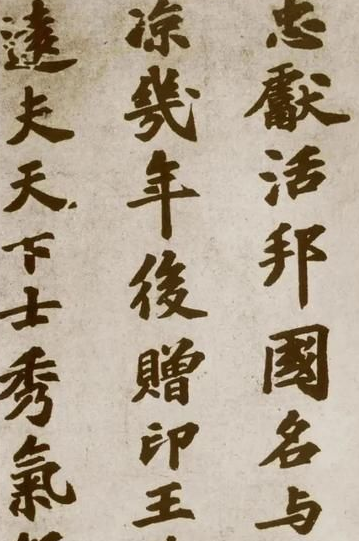 忠獻活邦國名与
凉幾年後贈印王
逵夫天下士秀氣